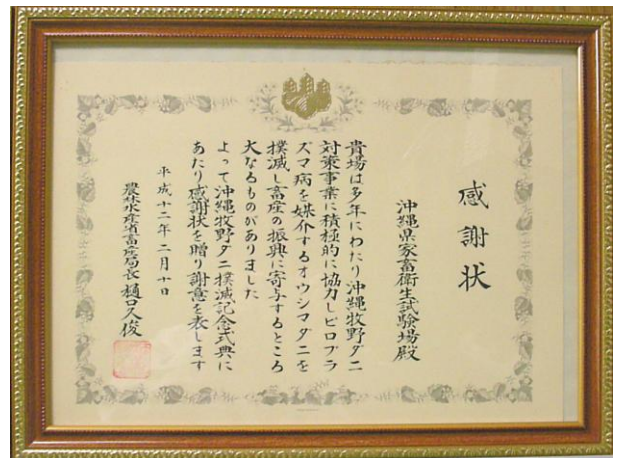 感謝状
沖縄県家畜衛生試験場殿
貴場は多年にわたり沖縄牧野ダニ
対策事業に積極的に協力しピロプラ
ズマ病を媒介するオウシマダニを
撲滅し畜産の振興に寄与するところ
大なるものがありました
よって沖縄牧野ダニ撲滅記念式典に
あたり感謝状を贈り謝意を表します
平成十二年二月十日
農林水産省畜産局長樋口久俊